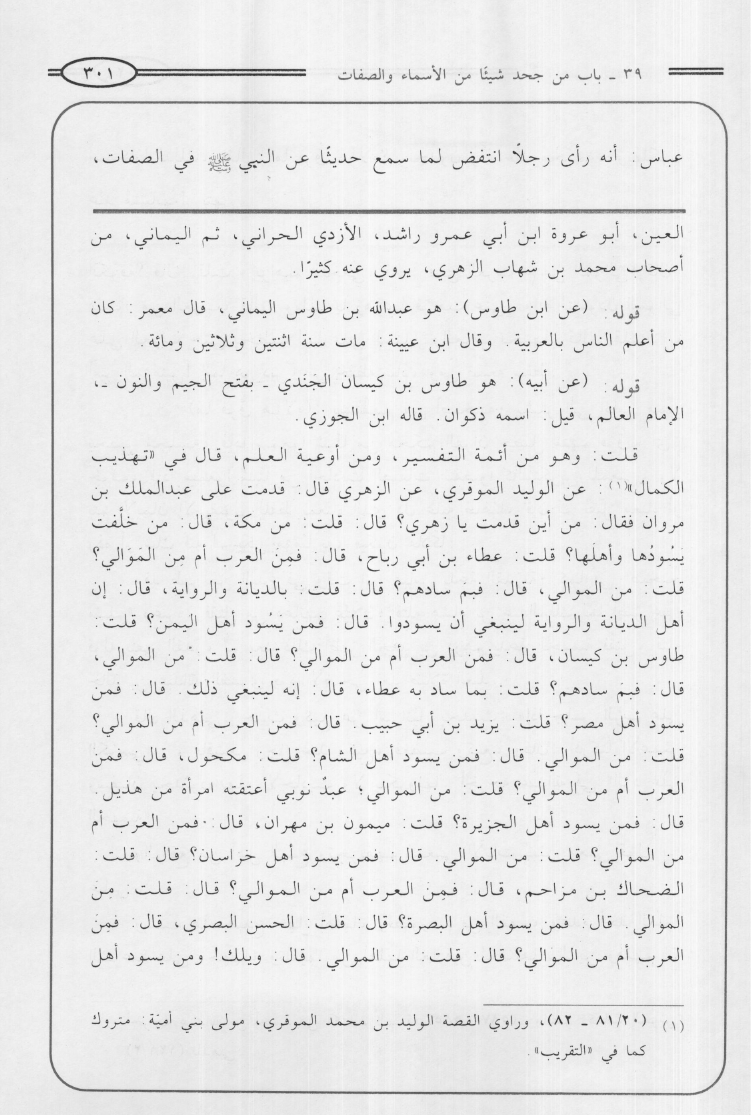 ٣٩ ـ باب من جحد شيئًا من الأسماء والصفات
٣٠١
عباس: أنه رأى رجلًا انتفض لما سمع حديثًا عن النبي ﷺ في الصفات،
العين، أبو عروة ابن أبي عمرو راشد، الأزدي الحراني، ثم اليماني، من
أصحاب محمد بن شهاب الزهري، يروي عنه كثيرًا.
قوله: (عن ابن طاوس): هو عبدالله بن طاوس اليماني، قال معمر: كان
من أعلم الناس بالعربية. وقال ابن عيينة: مات سنة اثنتين وثلاثين ومائة.
قوله: (عن أبيه): هو طاوس بن كيسان الجَنَدي ـ بفتح الجيم والنون ـ،
الإمام العالم، قيل: اسمه ذكوان. قاله ابن الجوزي.
قلت: وهو من أئمة التفسير، ومن أوعية العلم، قال في «تهذيب
الكمال»(١): عن الوليد الموقري، عن الزهري قال: قدمت على عبدالملك بن
مروان فقال: من أين قدمت يا زهري؟ قال: قلت: من مكة، قال: من خلَّفت
يَسُودُها وأهلَها؟ قلت: عطاء بن أبي رباح، قال: فمِنَ العرب أم مِنَ المَوَالي؟
قلت: من الموالي، قال: فبمَ سادهم؟ قال: قلت: بالديانة والرواية، قال: إن
أهل الديانة والرواية لينبغي أن يسودوا. قال: فمن يَسُود أهل اليمن؟ قلت:
طاوس بن كيسان، قال: فمن العرب أم من الموالي؟ قال: قلت: من الموالي،
قال: فبمَ سادهم؟ قلت: بما ساد به عطاء، قال: إنه لينبغي ذلك. قال: فمن
يسود أهل مصر؟ قلت: يزيد بن أبي حبيب. قال: فمن العرب أم من الموالي؟
قلت: من الموالي. قال: فمن يسود أهل الشام؟ قلت: مكحول، قال: فمن
العرب أم من الموالي؟ قلت: من الموالي؛ عبدٌ نوبي أعتقته امرأة من هذيل.
قال: فمن يسود أهل الجزيرة؟ قلت: ميمون بن مهران، قال: فمن العرب أم
من الموالي؟ قلت: من الموالي. قال: فمن يسود أهل خراسان؟ قال: قلت:
الضحاك بن مزاحم، قال: فمِنَ العرب أم من الموالي؟ قال: قلت: مِن
الموالي. قال: فمن يسود أهل البصرة؟ قال: قلت: الحسن البصري، قال: فمِنَ
العرب أم من الموالي؟ قال: قلت: من الموالي. قال: ويلك! ومن يسود أهل
(١) (٢٠/ ٨١ ـ ٨٢)، وراوي القصة الوليد بن محمد الموقري، مولى بني أمية: متروك
كما في «التقريب».